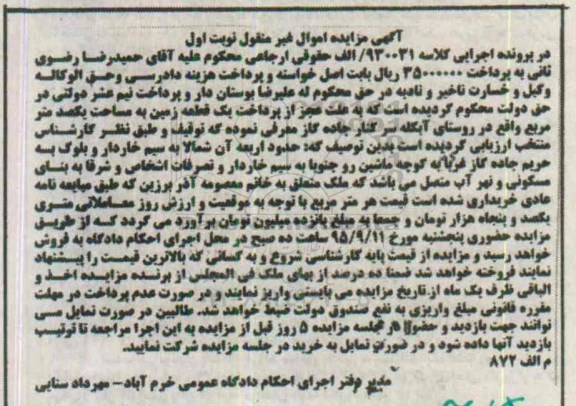 آگهی مزایده اموال غیر منقول نوبت اول
در پرونده اجرایی کلاسه ۹۳۰۰۳۱/ الف حقوقی ارجاعی محکوم علیه آقای حمیدرضا رضوی
ثانی به پرداخت ۳۵۰۰۰۰۰۰ ریال بابت اصل خواسته و پرداخت هزینه دادرسی وحق الوکاله
وکیل و خسارت تاخیر و تادیه در حق محکوم له علیرضا بوستان دار و پرداخت نیم عشر دولتی در
حق دولت محکوم گردیده است که به علت عجز از پرداخت یک قطعه زمین به مساحت یکصد متر
مربع واقع در روستای آبکله سر کنار جاده گاز معرفی نموده که توقیف و طبق نظر کارشناس
منتخب ارزیابی گردیده است بدین توصیف که: حدود اربعه آن شمالا به سیم خاردار و بلوک به
حریم جاده گاز غربا به کوچه ماشین رو جنوبا به سیم خاردار و تصرفات اشخاص و شرقا به بنای
مسکونی و نهر آب متصل می باشد که ملک متعلق به خانم معصومه آذر برزین که طبق مبایعه نامه
عادی خریداری شده است قیمت هر متر مربع با توجه به موقعیت و ارزش روز معاملاتی متری
یکصد و پنجاه هزار تومان و جمعا به مبلغ پانزده میلیون تومان برآورد می گردد که از طریق
مزایده حضوری پنجشنبه مورخ ۹۵/۹/۱۱ ساعت ده صبح در محل اجرای احکام دادگاه به فروش
خواهد رسید و مزایده از قیمت پایه کارشناسی شروع و به کسانی که بالاترین قیمت را پیشنهاد
نمایند فروخته خواهد شد ضمنا ده درصد از بهای ملک فی المجلس از برنده مزایده اخذ و
الباقی ظرف یک ماه از تاریخ مزایده می بایستی واریز نمایند و در صورت عدم پرداخت در مهلت
مقرره قانونی مبلغ واریزی به نفع صندوق دولت ضبط خواهد شد. طالبین در صورت تمایل می
توانند جهت بازدید و حضور در جلسه مزایده ۵ روز قبل از مزایده به این اجرا مراجعه تا ترتیب
بازدید آنها داده شود و در صورت تمایل به خرید در جلسه مزایده شرکت نمایید.
م الف ۸۷۲
مدیر دفتر اجرای احکام دادگاه عمومی خرم آباد– مهرداد سنایی